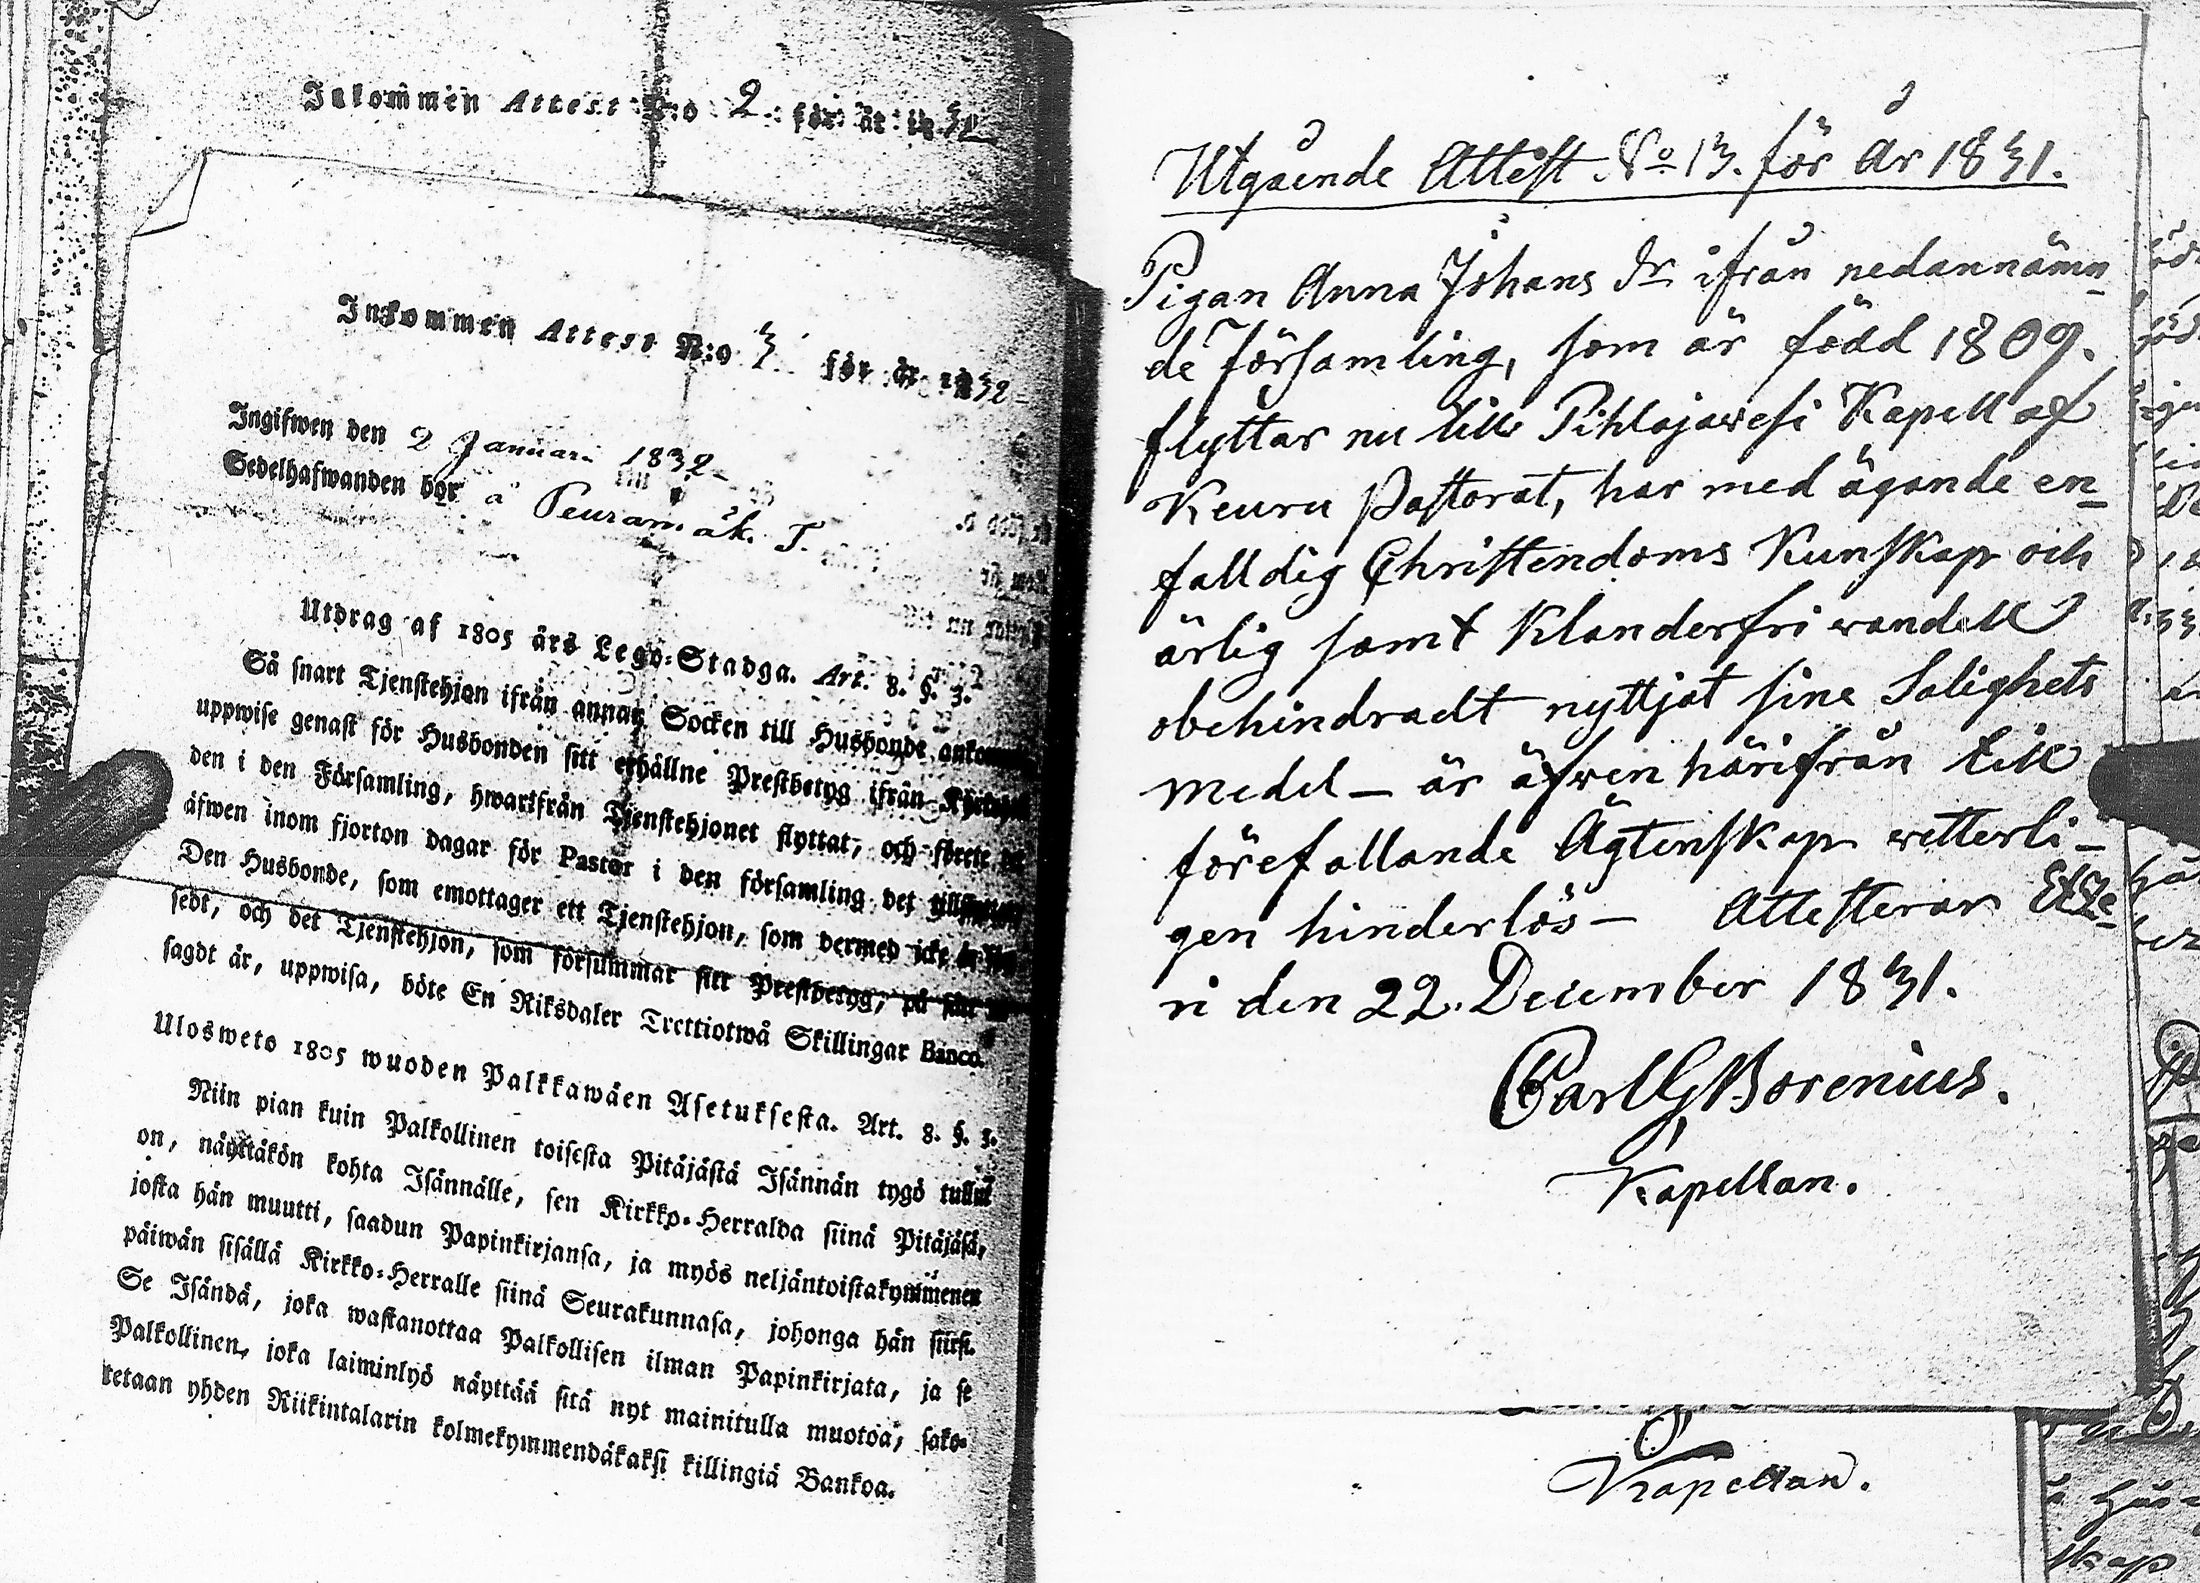 Inkommen Attest N:o 2. för år 1832
Inkommen Attest N:o 3 för år 1832
Ingifwen den 2 Januari 1832
Sedelhafwanden bor å Peuramäk. T.
Utdrag af 1805 års Lego-Stadga. Art. 8. §. 3.
Så snart Tjenstehjon ifrån annan Socken till Husbonde ankommer,
uppwise genast för Husbonden sitt erhållne Prestbetyg ifrån
den i den Församling, hwarifrån Tjenstehjonet flyttat, och förete det
äfwen inom fjorton dagar för Pastor i den församling det
Den Husbonde, som emottager ett Tjenstehjon, som dermed icke är
sedt, och det Tjenstehjon, som försummar sitt Prestbetyg, på sätt
sagdt är, uppwisa, böte En Riksdaler Trettiotwå Skillingar Banco.
Ulosweto 1805 wuoden Palkkawäen Asetuksesta. Art. 8. §. 3.
Niin pian kuin Palkollinen toisesta Pitäjästä Isännän tygö tullut
on, näyttäkön kohta Isännälle, sen Kirkko-Herralda siinä Pitäjäsä,
josta hän muutti, saadun Papinkirjansa, ja myös neljäntoistakymmenen
päiwän sisällä Kirkko-Herralle siinä Seurakunnasa, johonga hän siirsi.
Se Isändä, joka wastanottaa Palkollisen ilman Papinkirjata, ja se
Palkollinen, joka laiminlyö näyttää sitä nyt mainitulla muotoa, sako-
tetaan yhden Riikintalarin kolmekymmendäkaksi killingiä Bankoa.
Utgående Attest No 13. för År 1831.
Pigan Anna Johans dr ifrån nedannämn-
de Församling, som är född 1809.
flyttar nu till Pihlajawesi Kapell af
Keuru Pastorat, har med ägande en-
falldig Christendoms Kunskap och
ärlig samt Klanderfri wandell
obehindradt nyttjat sine Salighets
medel – är äfwen härifrån till
förefallande Ägtenskap wetterli-
gen hinderlös – Attesterar Etze-
ri den 22. December 1831.
Carl G Borenius.
Kapellan.
Kapellan.